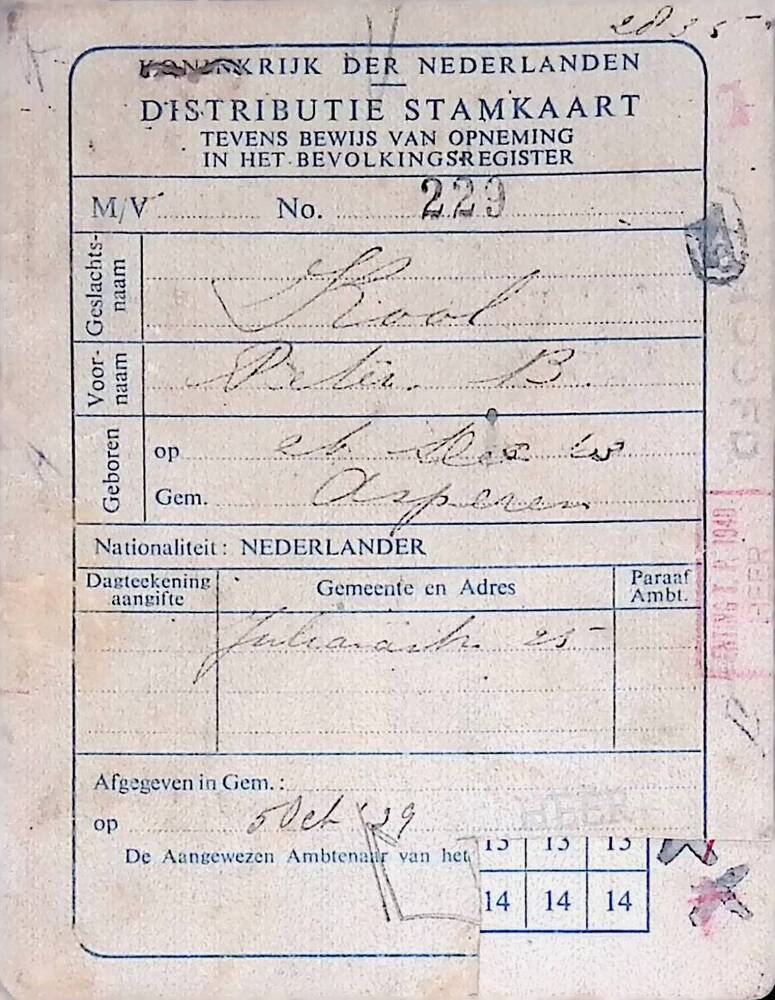 2835
KONINKRIJK DER NEDERLANDEN
DISTRIBUTIE STAMKAART
TEVENS BEWIJS VAN OPNEMING
IN HET BEVOLKINGSREGISTER
M/V No. 229
Geslachts-
naam
Kool
Voor-
naam
B.
Geboren
op
Gem. Asperen
Nationaliteit: NEDERLANDER
Dagteekening
aangifte
Gemeente en Adres
Paraaf
Ambt.
25
Afgegeven in Gem.:
HEER
op 5 Oct '39
De Aangewezen Ambtenaar van het
13 13 13
14 14 14
HOOFD
1940
HEER